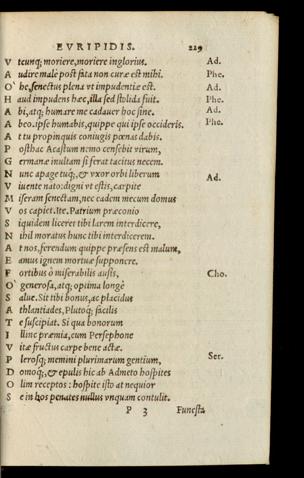 EVRIPIDIS. 229
V tcunq; moriere, moriere inglorius. Ad.
A udire male post fata non curæ est mihi. Phe.
O he, senectus plena vt impudentiæ est. Ad.
H aud impudens hæc, illa sed stolida fuit. Phe.
A bi, atq; humare me cadauer hoc sine. Ad.
A beo. ipse humabis, quippe qui ipse occideris. Phe.
A t tu propinquis coniugis pœnas dabis.
P osthac Acastum nemo censebit virum,
G ermanæ inultam si ferat tacitus necem.
N unc apage tuq;, & vxor orbi liberum Ad.
V iuente nato: digni vt estis, carpite
M iseram senectam, nec eadem mecum domus
V os capiet. Ite. Patrium præconio
S iquidem liceret tibi larem interdicere,
N ihil moratus hunc tibi interdicerem.
A t nos, ferendum quippe præsens est malum,
E amus ignem mortuæ supponere.
F ortibus ô miserabilis ausis, Cho.
O' generosa, atq; optima longè
S alue. Sit tibi bonus, ac placidus
A thlantiades, Plutoq; facilis
T e suscipiat. Si qua bonorum
I llinc præmia, cum Persephone
V itæ fructus carpe bene actæ.
P lerosq; memini plurimarum gentium, Ser.
D omoq;, & epulis hic ab Admeto hospites
O lim receptos: hospite isto at nequior
S e in hos penates nullus vnquam contulit.
P 3 Funesta